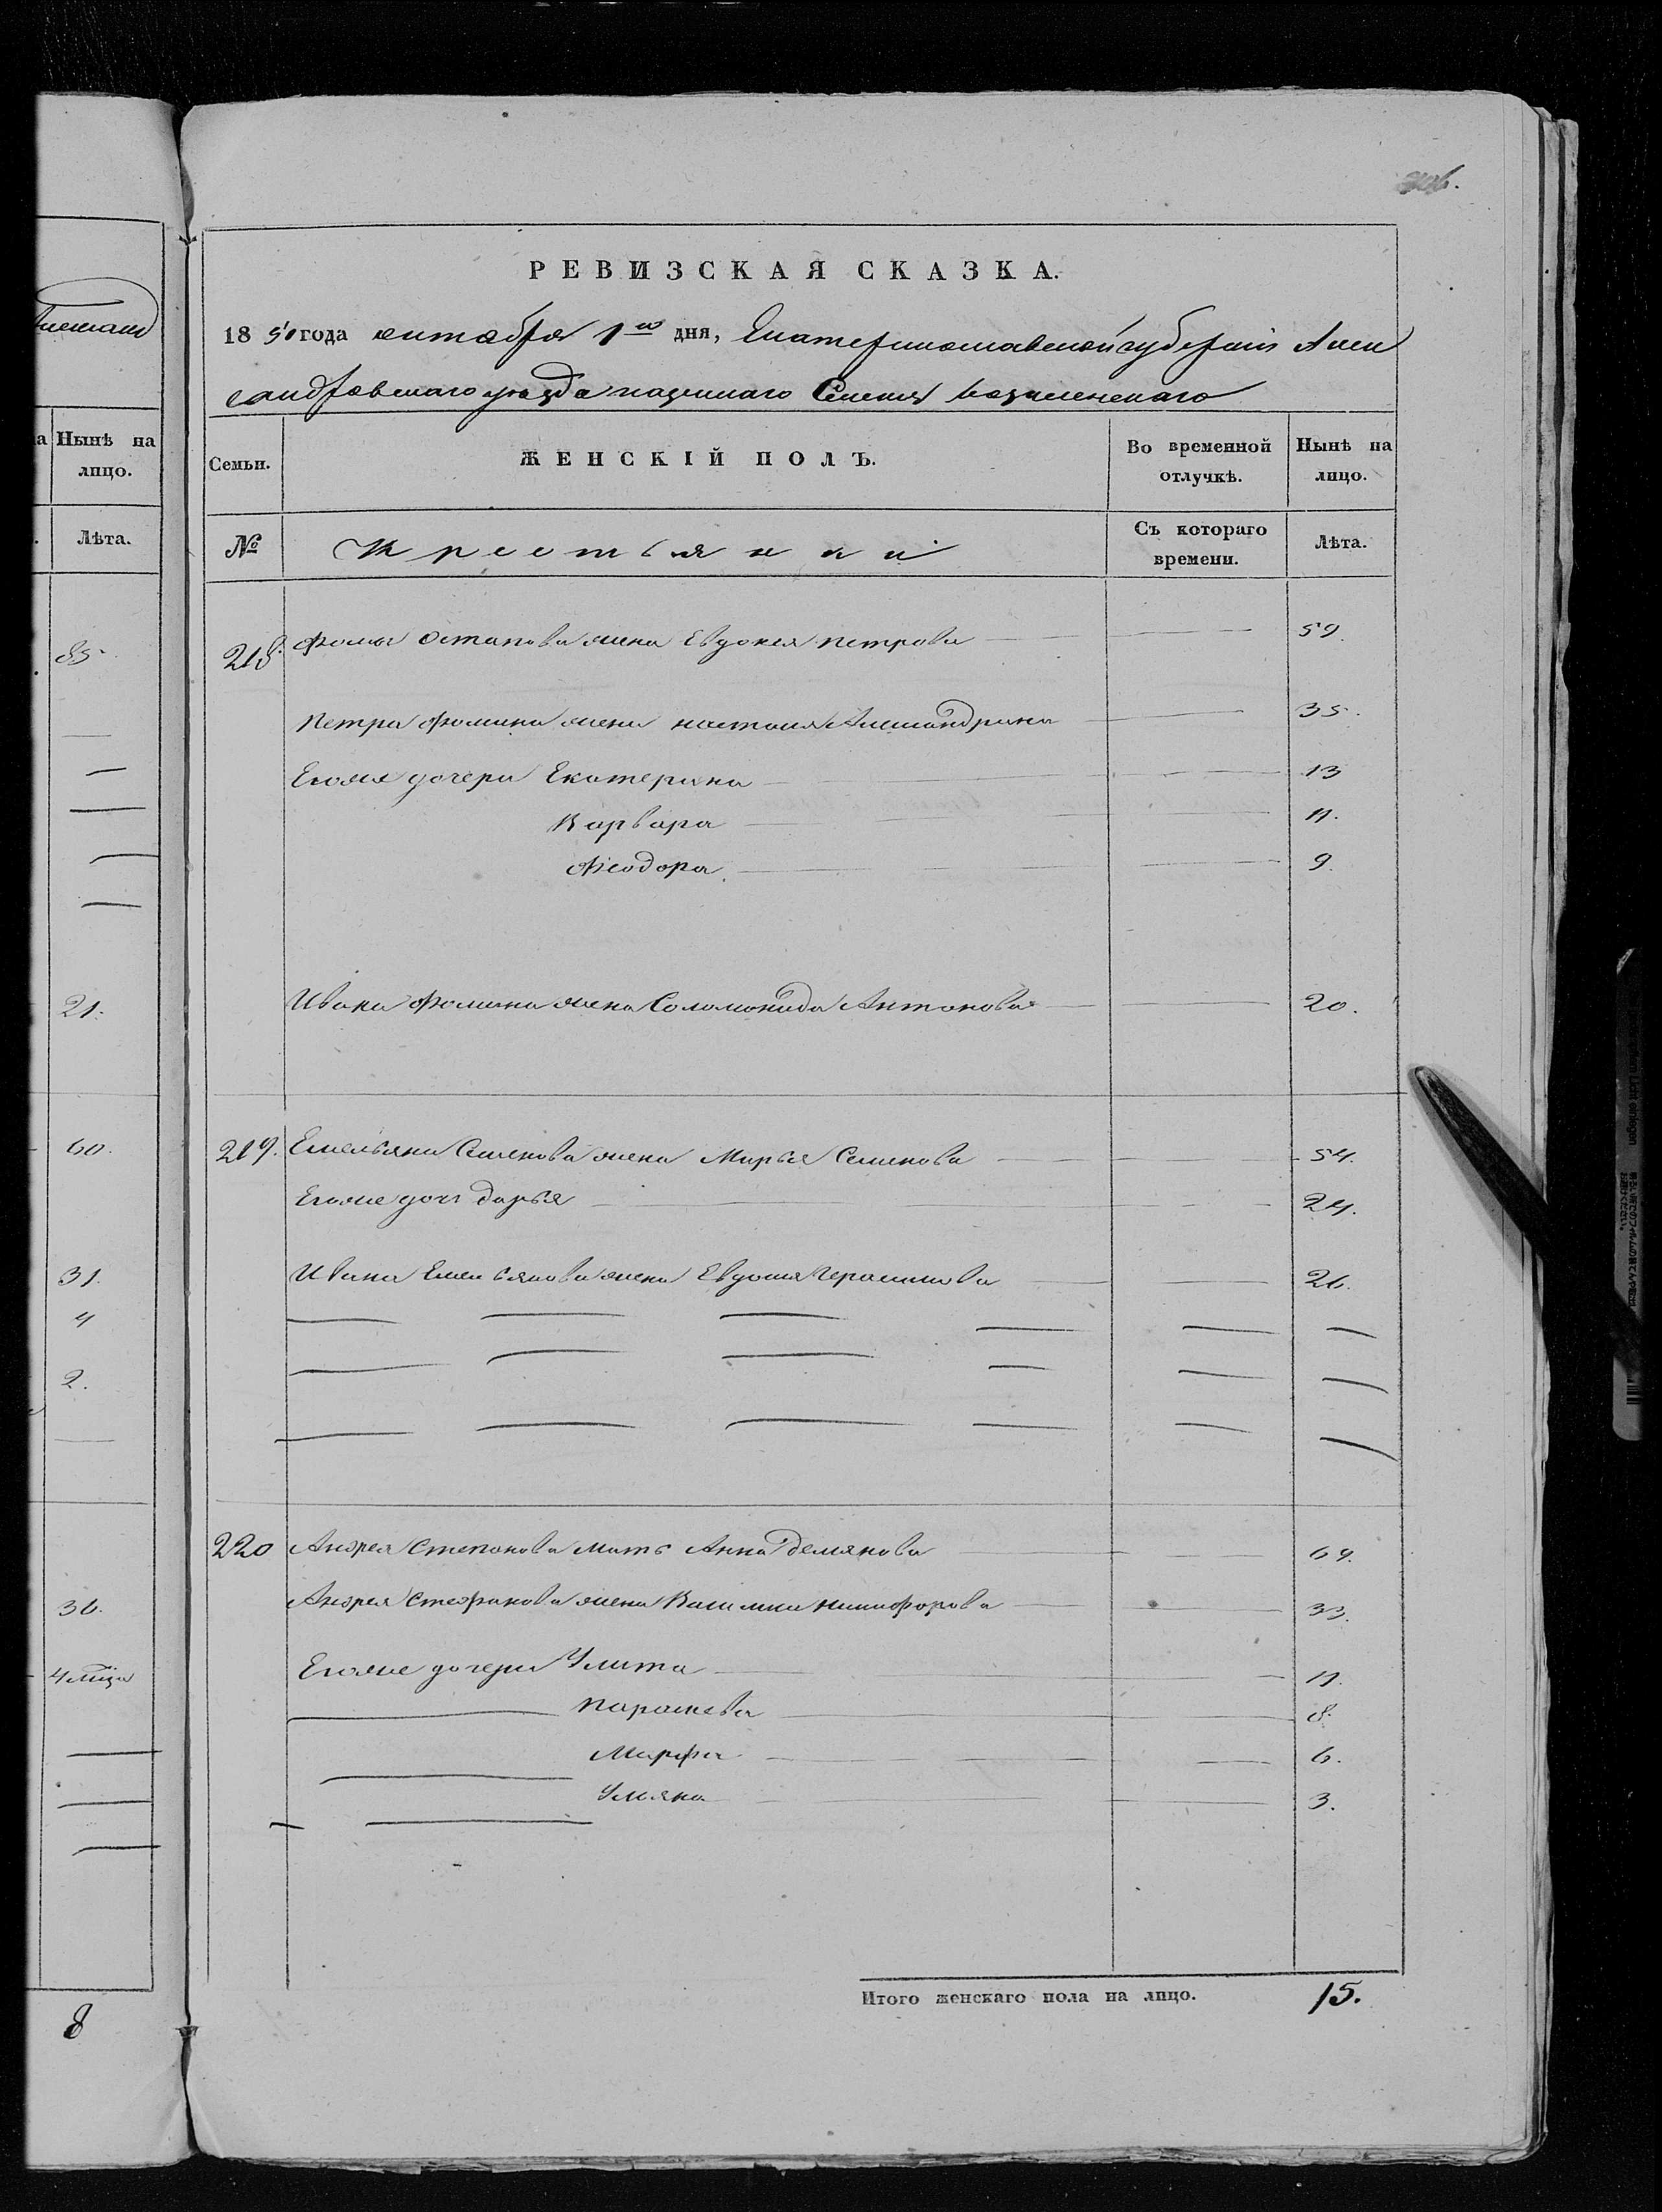 РЕВИЗСКАЯ СКАЗКА.
18 50 года октября 1го дня, Екатеринославской губернiи Алек
сандровскаго уезда казеннаго Селения Вознесенскаго
Семьи.
ЖЕНСКІЙ ПОЛЪ.
Во временной отлучкѣ.
Нынѣ на лицо.
№
Крестьянки
Съ котораго времени.
Лѣта.
218. Фомы Остапова жена Евдокея Петрова 59.
Петра Фомина жена Настасия Александрина 35.
Егоже дочери Екатерина 13
Варвара 11.
Феодора 9.
Ивана Фомина жена Соломонида Антонова 20.
219. Емельяна Семенова жена Марья Семенова 54.
Егоже дочь Дарья 24.
Ивана Емельянова жена Евдокия Герасимова 26.
220 Андрея Степанова мать Анна Демянова 69.
Андрея Стефанова жена Никифорова 33.
Егоже дочери Улита 11.
Параскева 8.
Марфа 6.
Ульяна 3.
Итого женскаго пола на лицо. 15.
Нынѣ на лицо.
Лѣта.
85.
21.
60.
31.
4
2.
36.
8